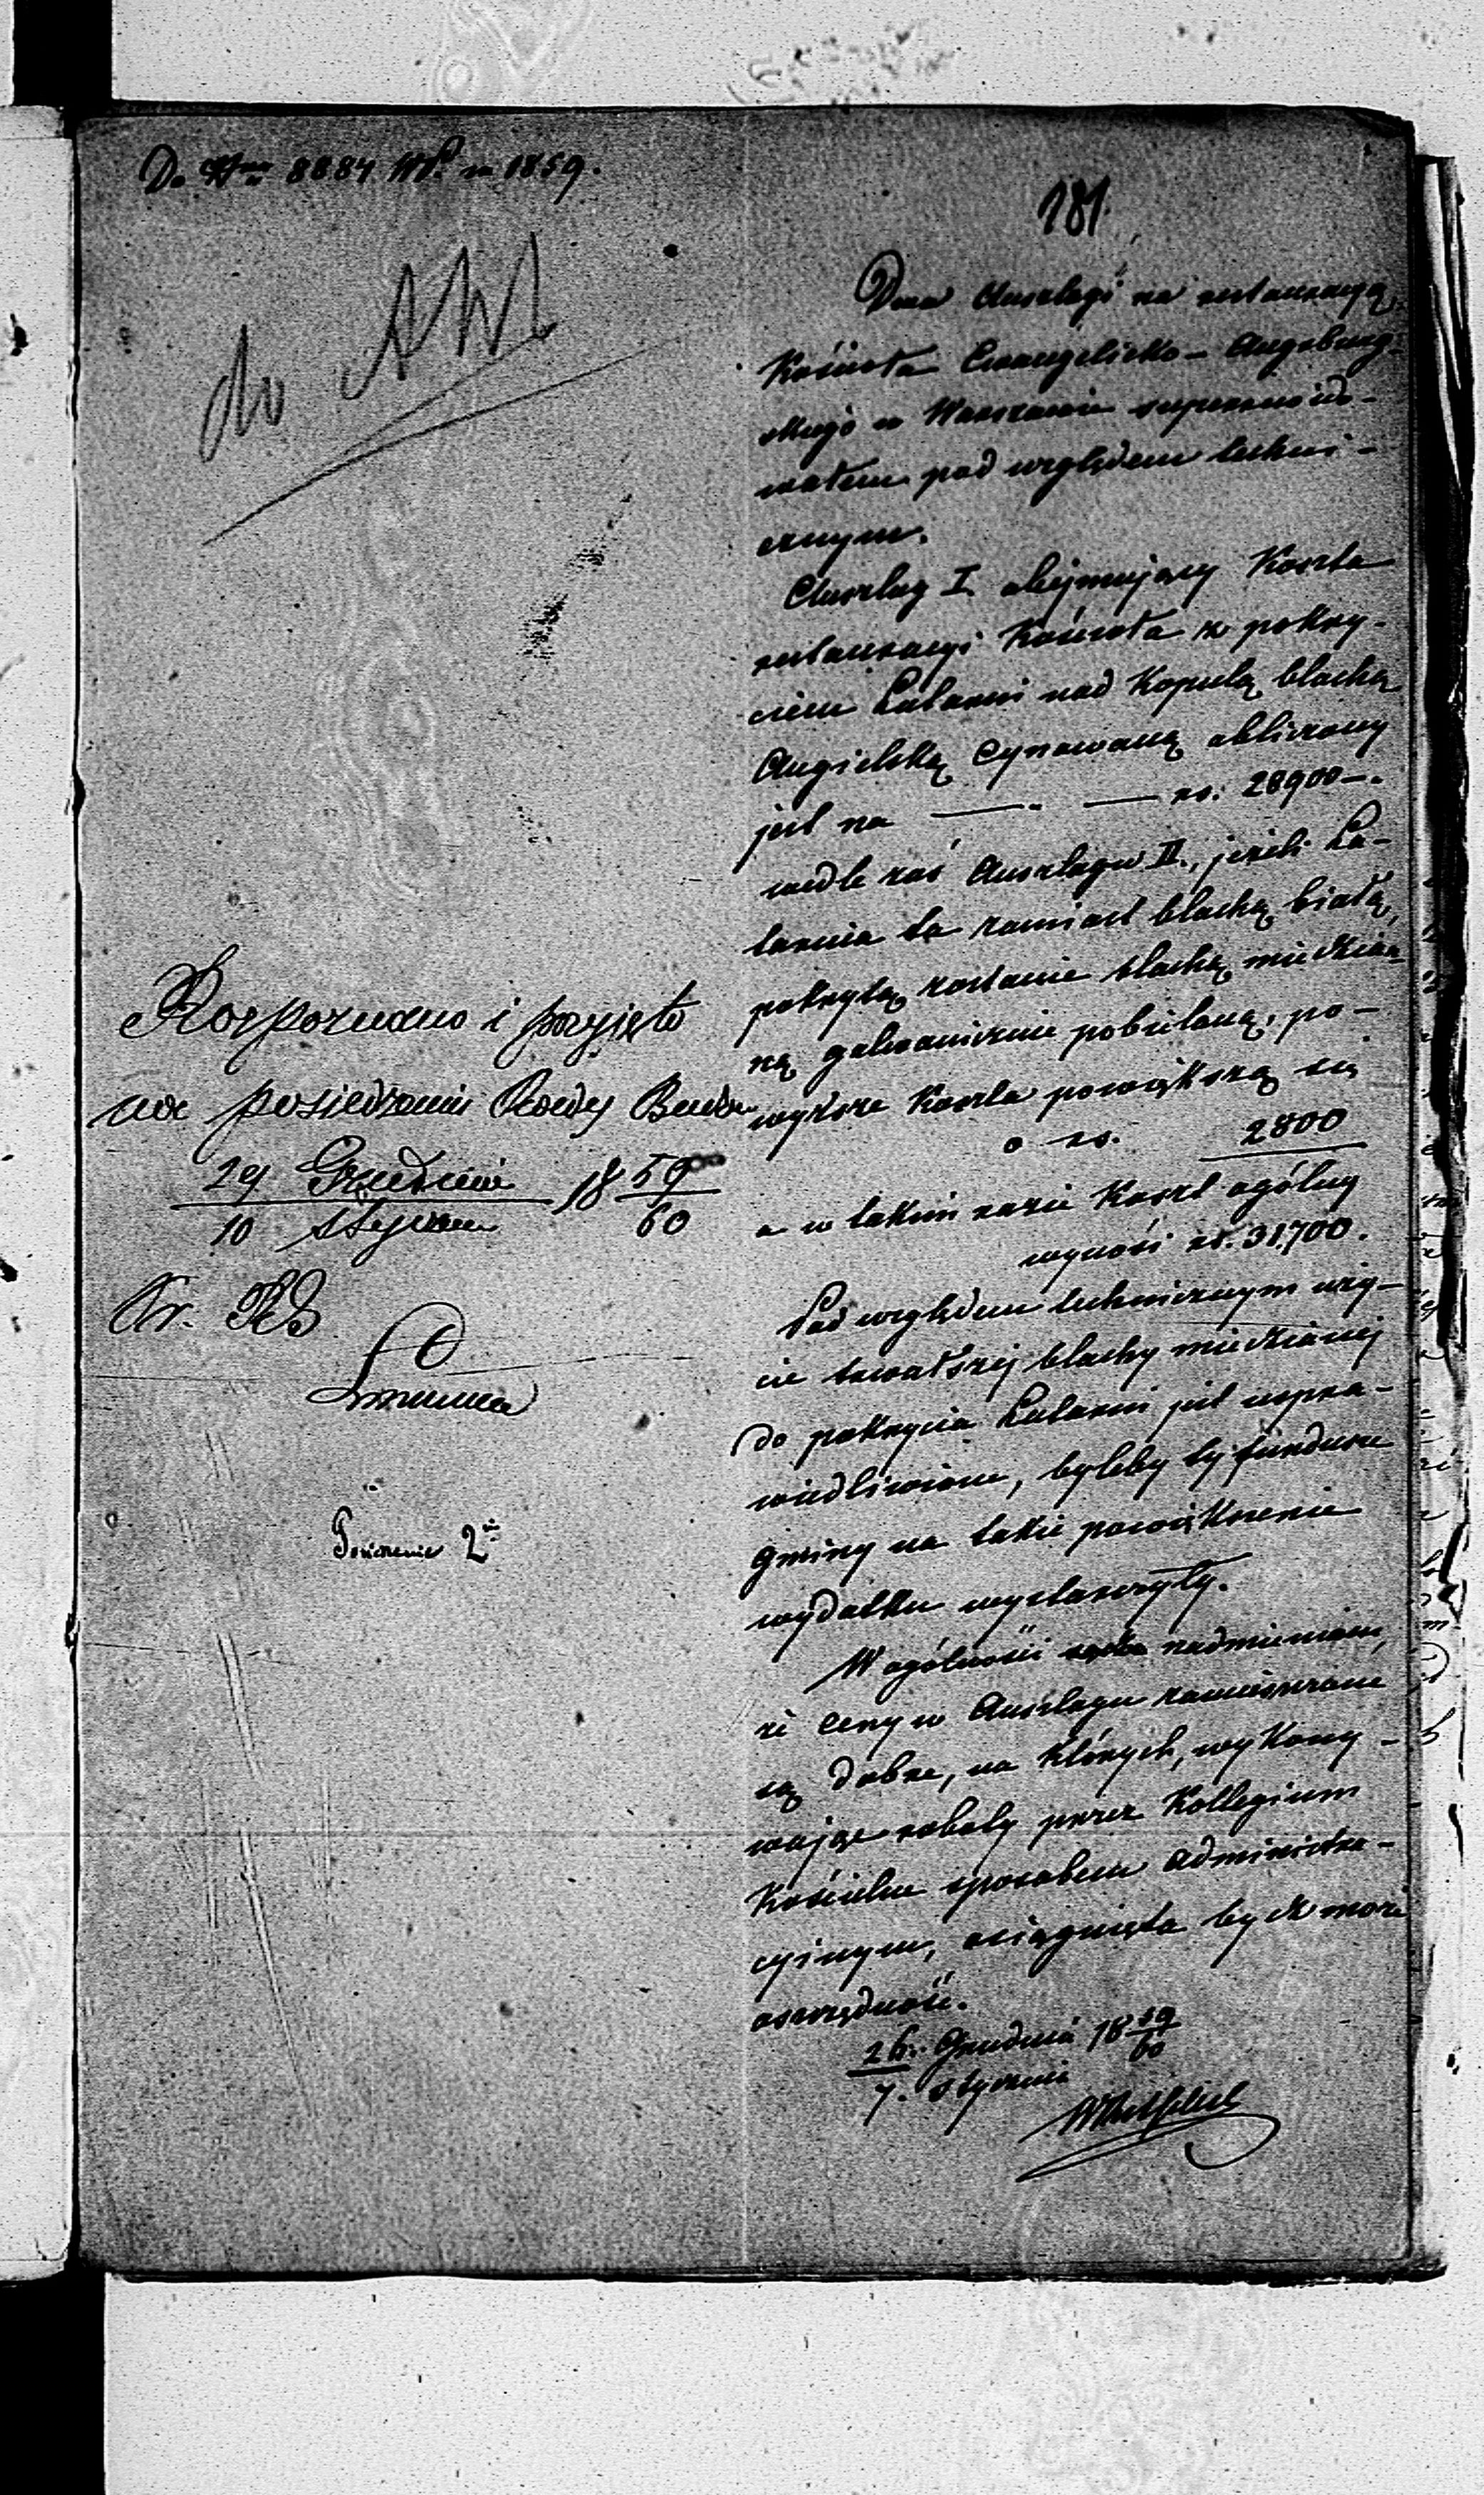 Do Nru 8884 WP. z 1859.
181.
do AWP
Dwa Anszlagi na restauracyą
Kościoła Ewangelicko-Augsburg-
skiego w Warszawie superrewido-
wałem pod względem techni-
cznym.
Anszlag I. obejmujący Koszta
restauracyi Kościoła z pokry-
ciem Latarni nad Kopułą blachą
Angielską Cynowaną obliczony
jest na — — rs: 28900—.
wedle zaś Anszlagu II., jeżeli La-
tarnia ta zamiast blachą białą,
pokrytą zostanie blachą miedzia-
ną galwanicznie pobieloną, po-
wyższe Koszta powiększą się
o rs. 2800
a w takim razie Koszt ogólny
wynosi rs. 31,700.
Pod względem technicznym uży-
cie trwałszej blachy miedzianej
do pokrycia Latarni jest uspra-
wiedliwione, byleby tyż fundusze
Gminy na takie powiększenie
wydatku wystarczyły.
W ogólności nadmieniam,
że Ceny w Anszlagu zamieszczone
są dobre, na których, wykony-
wając roboty przez Kollegium
Kościelne sposobem administra-
cyinym, osiągnięta bydź może
oszczędność.
26. Grudnia 1859
7. Stycznia 60
Rozpoznano i przyjęto
na posiedzeniu Rady Budow
29 Grudnia 1859
10 Stycznia 60
Posiedzenie 2ie